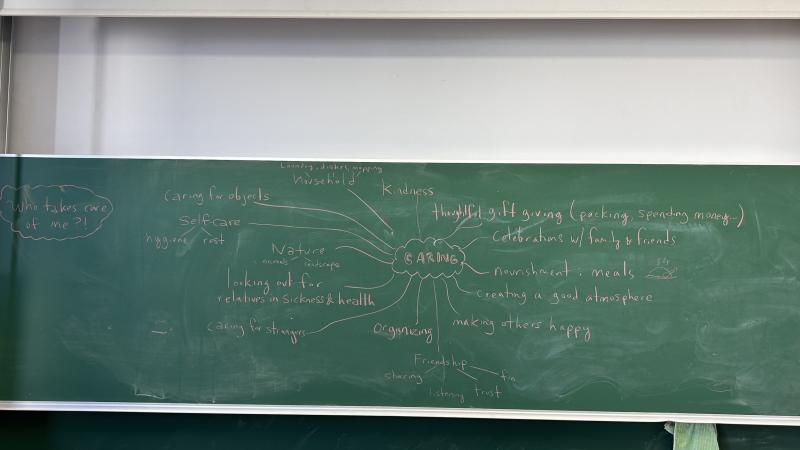 Who takes care
of me?!
Laundry, dishes, mopping
household
Kindness
caring for objects
Self-care
hygiene rest
Nature
animals landscape
looking out for
relatives in sickness & health
caring for strangers
CARING
thoughtful gift giving (packing, spending money...)
Celebrations w/ family & friends
nourishment: meals
creating a good atmosphere
making others happy
Organizing
Friendship
sharing
listening
trust
fun